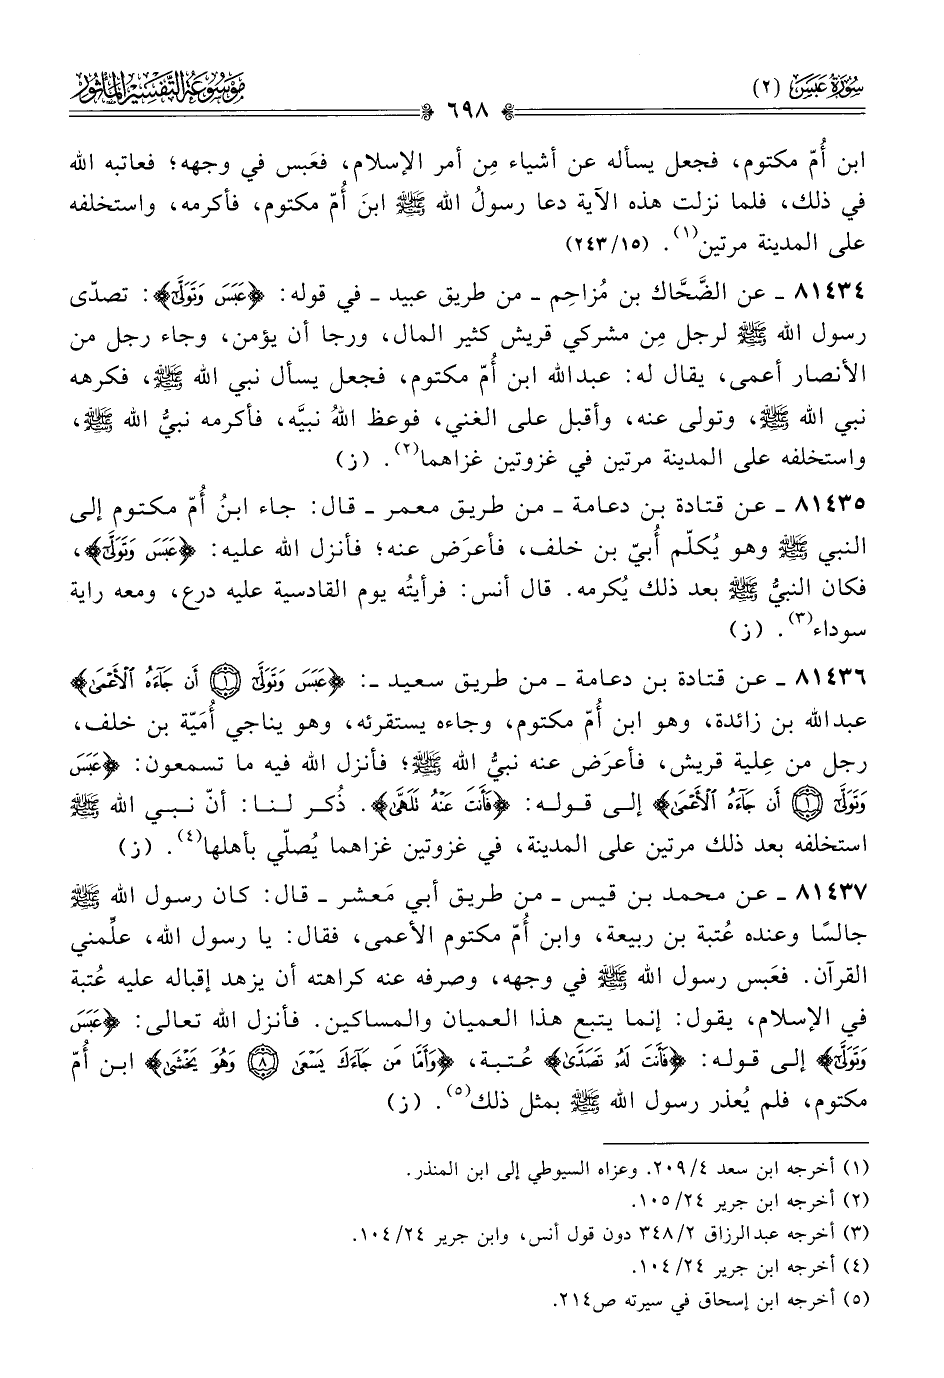 سُورَةُ عَبَسَ (٢)
مَوْسُوعَةُ التَّفْسِيرِ المَأْثُور
٦٩٨
ابن أُمّ مكتوم، فجعل يسأله عن أشياء مِن أمر الإسلام، فعَبس في وجهه؛ فعاتبه الله
في ذلك، فلما نزلت هذه الآية دعا رسولُ الله ﷺ ابنَ أُمّ مكتوم، فأكرمه، واستخلفه
على المدينة مرتين(١). (٢٤٣/١٥)
٨١٤٣٤ ـ عن الضَّحَّاك بن مُزاحِم ـ من طريق عبيد ـ في قوله: ﴿عَبَسَ وَتَوَلَّىٰٓ﴾: تصدّى
رسول الله ﷺ لرجل مِن مشركي قريش كثير المال، ورجا أن يؤمن، وجاء رجل من
الأنصار أعمى، يقال له: عبدالله ابن أُمّ مكتوم، فجعل يسأل نبي الله ﷺ، فكرهه
نبي الله ﷺ، وتولى عنه، وأقبل على الغني، فوعظ اللهُ نبيَّه، فأكرمه نبيُّ الله ﷺ،
واستخلفه على المدينة مرتين في غزوتين غزاهما(٢). (ز)
٨١٤٣٥ ـ عن قتادة بن دعامة ـ من طريق معمر ـ قال: جاء ابنُ أُمّ مكتوم إلى
النبي ﷺ وهو يُكلّم أُبيّ بن خلف، فأعرَض عنه؛ فأنزل الله عليه: ﴿عَبَسَ وَتَوَلَّىٰٓ﴾،
فكان النبيُّ ﷺ بعد ذلك يُكرمه. قال أنس: فرأيتُه يوم القادسية عليه درع، ومعه راية
سوداء(٣). (ز)
٨١٤٣٦ ـ عن قتادة بن دعامة ـ من طريق سعيد ـ: ﴿عَبَسَ وَتَوَلَّىٰٓ ۝١ أَن جَآءَهُ ٱلْأَعْمَىٰ﴾
عبدالله بن زائدة، وهو ابن أُمّ مكتوم، وجاءه يستقرئه، وهو يناجي أُمَيّة بن خلف،
رجل من عِلية قريش، فأعرَض عنه نبيُّ الله ﷺ؛ فأنزل الله فيه ما تسمعون: ﴿عَبَسَ
وَتَوَلَّىٰٓ ۝١ أَن جَآءَهُ ٱلْأَعْمَىٰ﴾ إلى قوله: ﴿فَأَنتَ عَنْهُ تَلَهَّىٰ﴾. ذُكر لنا: أنّ نبي الله ﷺ
استخلفه بعد ذلك مرتين على المدينة، في غزوتين غزاهما يُصلّي بأهلها(٤). (ز)
٨١٤٣٧ ـ عن محمد بن قيس ـ من طريق أبي مَعشر ـ قال: كان رسول الله ﷺ
جالسًا وعنده عُتبة بن ربيعة، وابن أُمّ مكتوم الأعمى، فقال: يا رسول الله، علِّمني
القرآن. فعَبس رسول الله ﷺ في وجهه، وصرفه عنه كراهته أن يزهد إقباله عليه عُتبة
في الإسلام، يقول: إنما يتبع هذا العميان والمساكين. فأنزل الله تعالى: ﴿عَبَسَ
وَتَوَلَّىٰٓ﴾ إلى قوله: ﴿فَأَنتَ لَهُۥ تَصَدَّىٰ﴾ عُتبة، ﴿وَأَمَّا مَن جَآءَكَ يَسْعَىٰ ۝٨ وَهُوَ يَخْشَىٰ﴾ ابن أُمّ
مكتوم، فلم يُعذر رسول الله ﷺ بمثل ذلك(٥). (ز)
(١) أخرجه ابن سعد ٢٠٩/٤. وعزاه السيوطي إلى ابن المنذر.
(٢) أخرجه ابن جرير ١٠٥/٢٤.
(٣) أخرجه عبدالرزاق ٣٤٨/٢ دون قول أنس، وابن جرير ١٠٤/٢٤.
(٤) أخرجه ابن جرير ١٠٤/٢٤.
(٥) أخرجه ابن إسحاق في سيرته ص٢١٤.